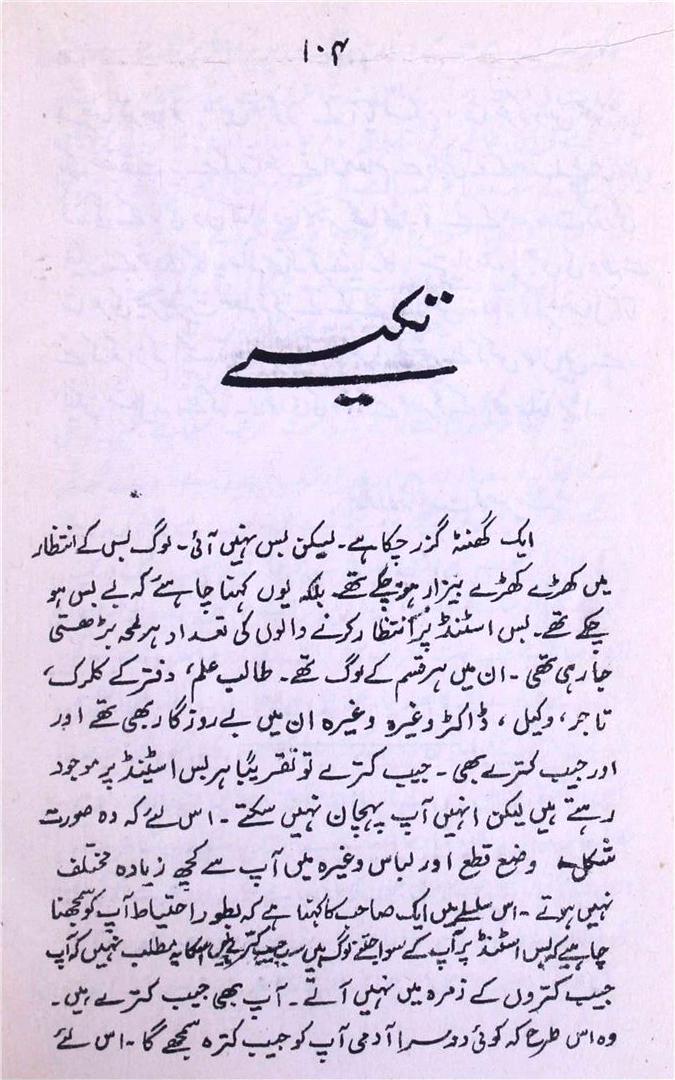 ۱۰۴
تکیے
ایک گھنٹہ گزر چکا ہے۔ لیکن بس نہیں آئی۔ لوگ بس کے انتظار
میں کھڑے کھڑے بیزار ہو چکے تھے۔ بلکہ یوں کہنا چاہئے کہ بے بس ہو
چکے تھے۔ بس اسٹنڈ پر انتظار کرنے والوں کی تعداد ہر لمحہ بڑھتی
جا رہی تھی۔ ان میں ہر قسم کے لوگ تھے۔ طالب علم، دفتر کے کلرک،
تاجر، وکیل، ڈاکٹر وغیرہ وغیرہ ان میں بے روزگار بھی تھے اور
اور جیب کترے بھی۔ جیب کترے تو تقریباً ہر بس اسٹینڈ پر موجود
رہتے ہیں لیکن انہیں آپ پہچان نہیں سکتے۔ اس لئے کہ وہ صورت
شکل۔ وضع قطع اور لباس وغیرہ میں آپ سے کچھ زیادہ مختلف
نہیں ہوتے۔ اس سلسلے میں ایک صاحب کا کہنا ہے کہ بطور احتیاط آپ کو سمجھنا
چاہیے کہ بس اسٹنڈ پر آپ کے سوا جتنے لوگ ہیں سب جیب کترے ہیں اسکا یہ مطلب نہیں کہ آپ
جیب کتروں کے زمرہ میں نہیں آتے۔ آپ بھی جیب کترے ہیں۔
وہ اس طرح کہ کوئی دوسرا آدمی آپ کو جیب کترہ سمجھے گا۔ اس لئے